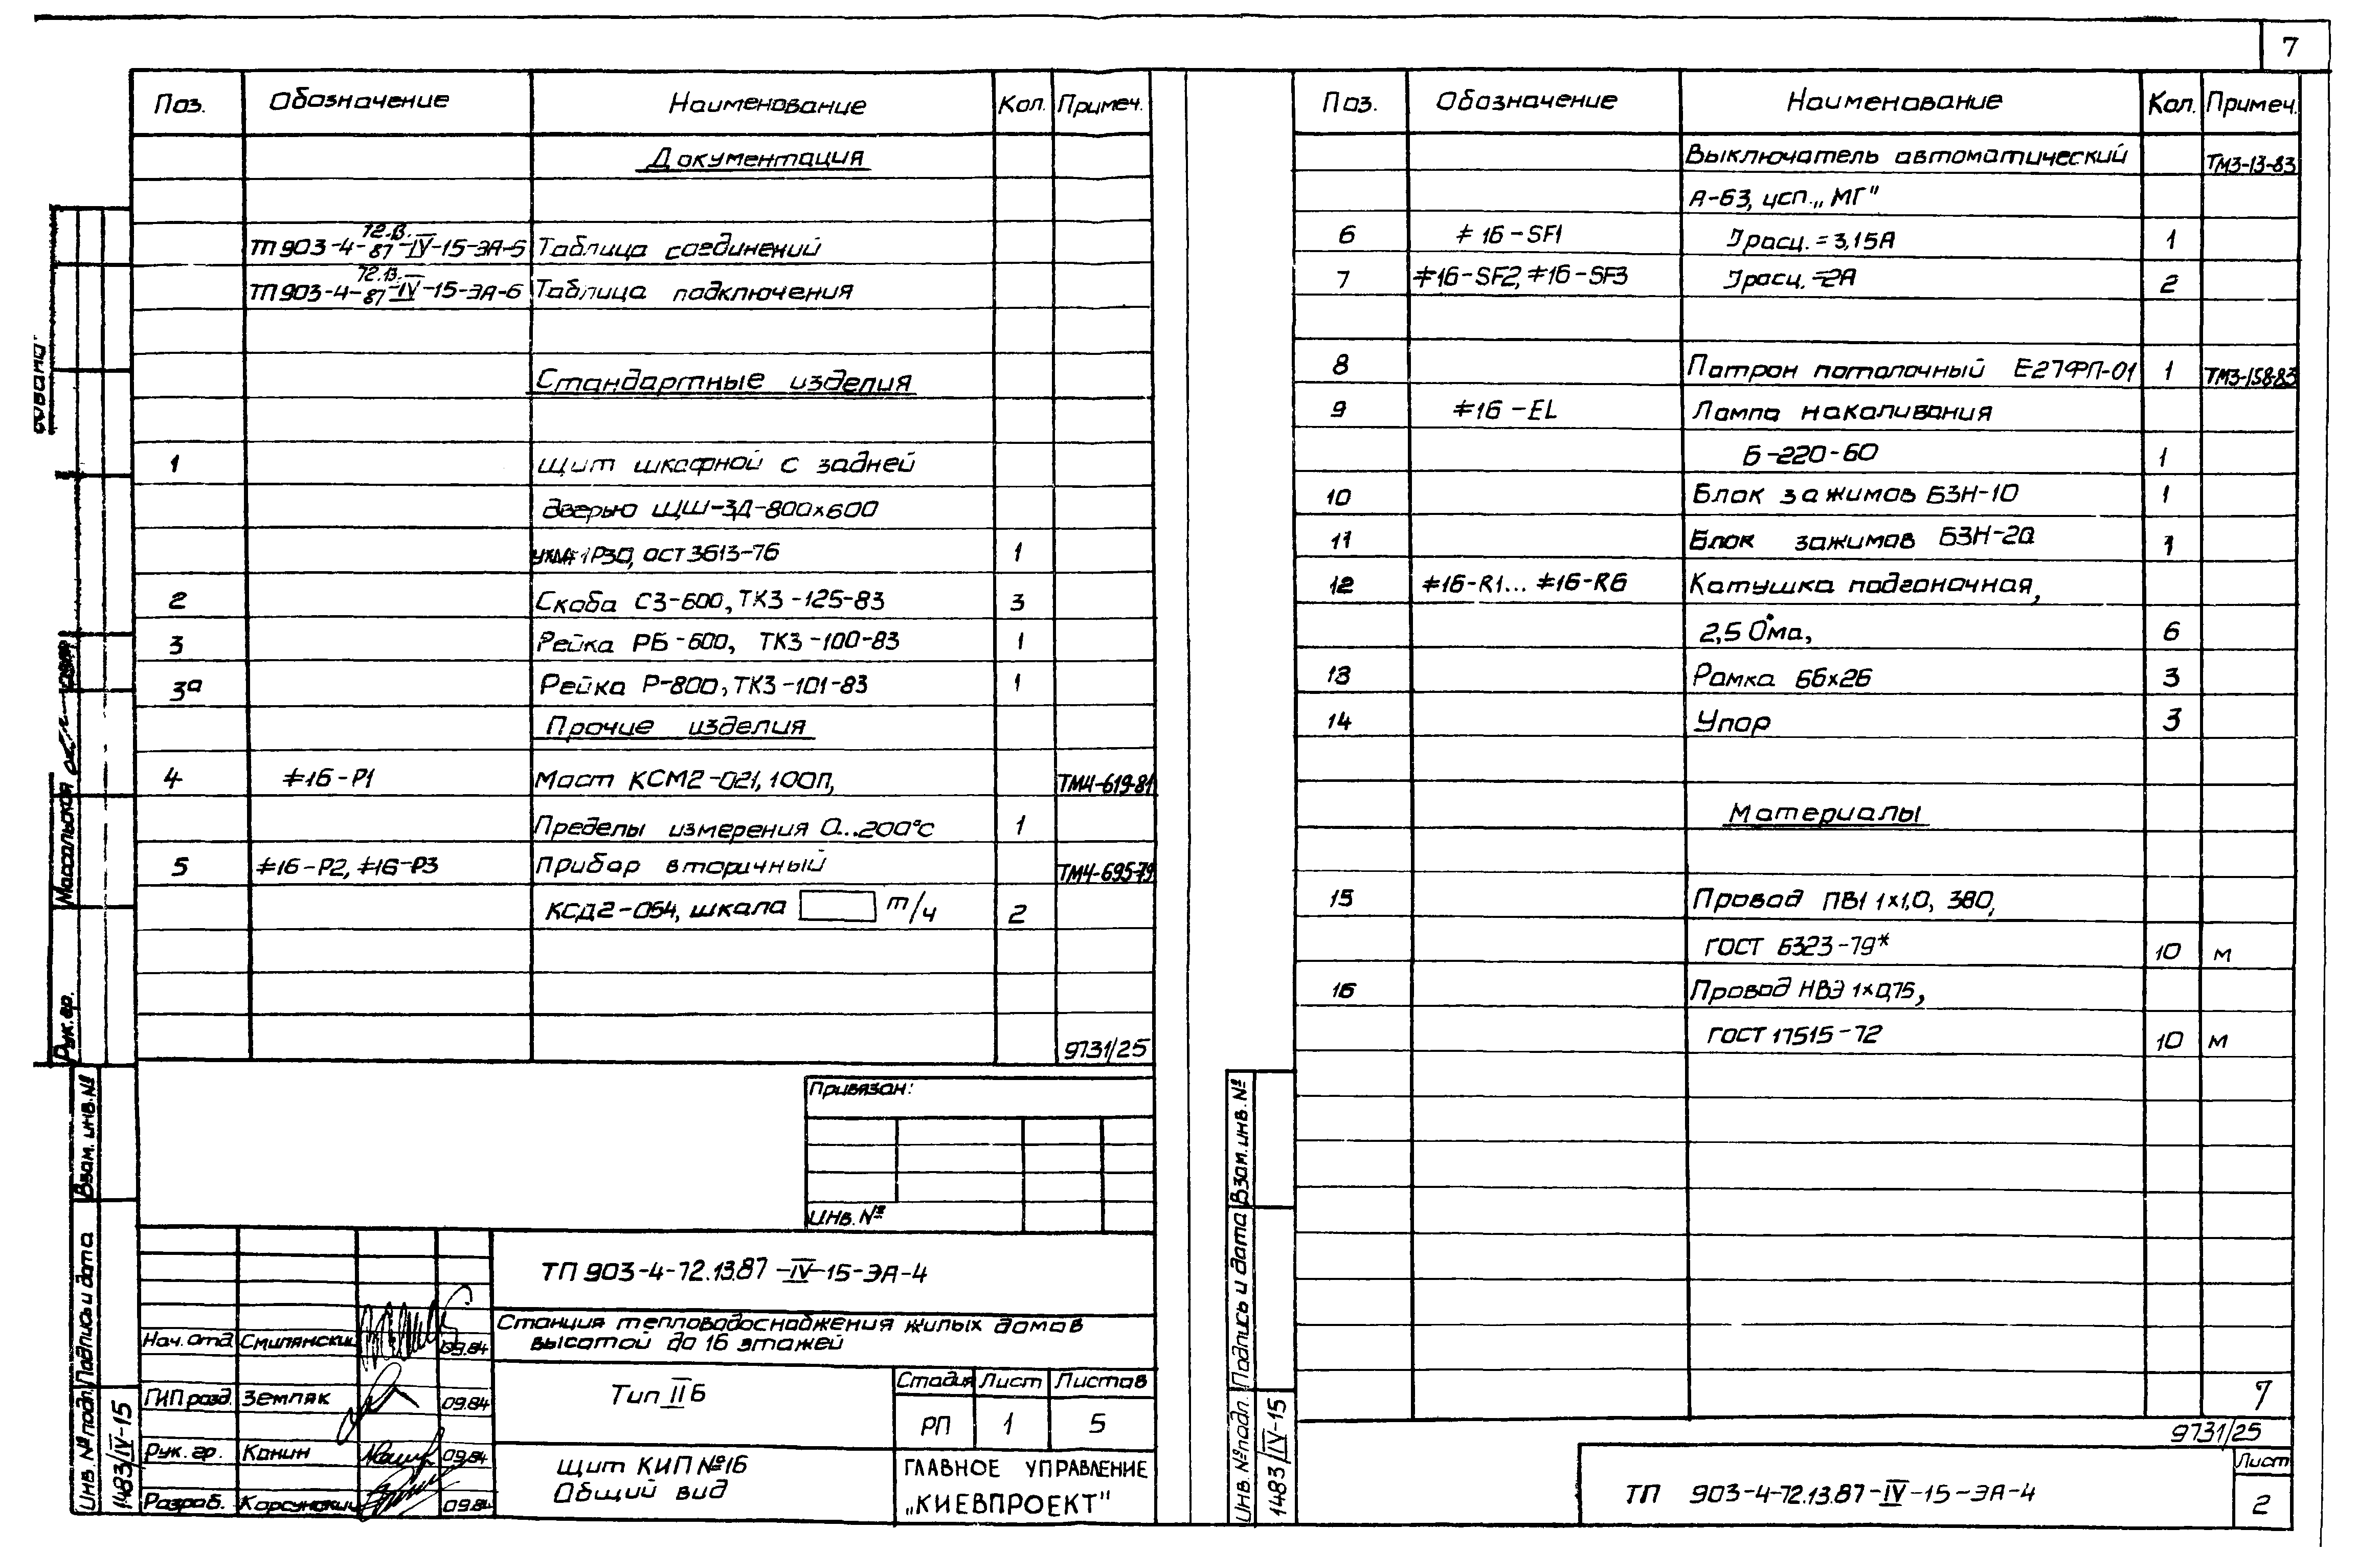 7
Поз. Обозначение Наименование Кол. Примеч.
Документация
ТП 903-4-72.13.87-IV-15-ЭА-5 Таблица соединений
ТП 903-4-72.13.87-IV-15-ЭА-6 Таблица подключения
Стандартные изделия
1 Щит шкафной с задней
дверью ЩШ-ЗД-800х600
УХЛ4 IP30, ост 36 13-76 1
2 Скоба СЗ-600, ТКЗ-125-83 3
3 Рейка РБ-600, ТКЗ-100-83 1
3а Рейка Р-800, ТКЗ-101-83 1
Прочие изделия
4 ≠16-P1 Мост КСМ2-021, 100П, ТМ4-619-81
Пределы измерения 0...200°С 1
5 ≠16-P2, ≠16-P3 Прибор вторичный ТМ4-695-79
КСД2-054, шкала т/ч 2
9731/25
Привязан:
Инв. №
ТП 903-4-72.13.87-IV-15-ЭА-4
Станция тепловодоснабжения жилых домов
высотой до 16 этажей
Нач. отд. Смилянский 09.84
ГИП разд. Земляк 09.84
Рук. гр. Канин 09.84
Разраб. Корсунский 09.84
Тип II Б
Стадия Лист Листов
РП 1 5
Щит КИП №16
Общий вид
ГЛАВНОЕ УПРАВЛЕНИЕ
„КИЕВПРОЕКТ"
Рук. гр. Массальской
Взам. инв. №
Подпись и дата
Инв. № подл.
1483/IV-15
Поз. Обозначение Наименование Кол. Примеч.
Выключатель автоматический ТМЗ-13-83
А-63, исп. „МГ"
6 ≠16-SF1 Iрасц. = 3,15А 1
7 ≠16-SF2, ≠16-SF3 Iрасц. = 2А 2
8 Патрон потолочный Е27ФП-01 1 ТМЗ-158-83
9 ≠16-EL Лампа накаливания
Б-220-60 1
10 Блок зажимов БЗН-10 1
11 Блок зажимов БЗН-20 1
12 ≠16-R1... ≠16-R6 Катушка подгоночная,
2,5 Ома, 6
13 Рамка 66х26 3
14 Упор 3
Материалы
15 Провод ПВ1 1х1,0, 380,
ГОСТ 6323-79* 10 м
16 Провод НВЭ 1х0,75,
ГОСТ 17515-72 10 м
7
9731/25
ТП 903-4-72.13.87-IV-15-ЭА-4
Лист
2
Взам. инв. №
Подпись и дата
Инв. № подл.
1483/IV-15